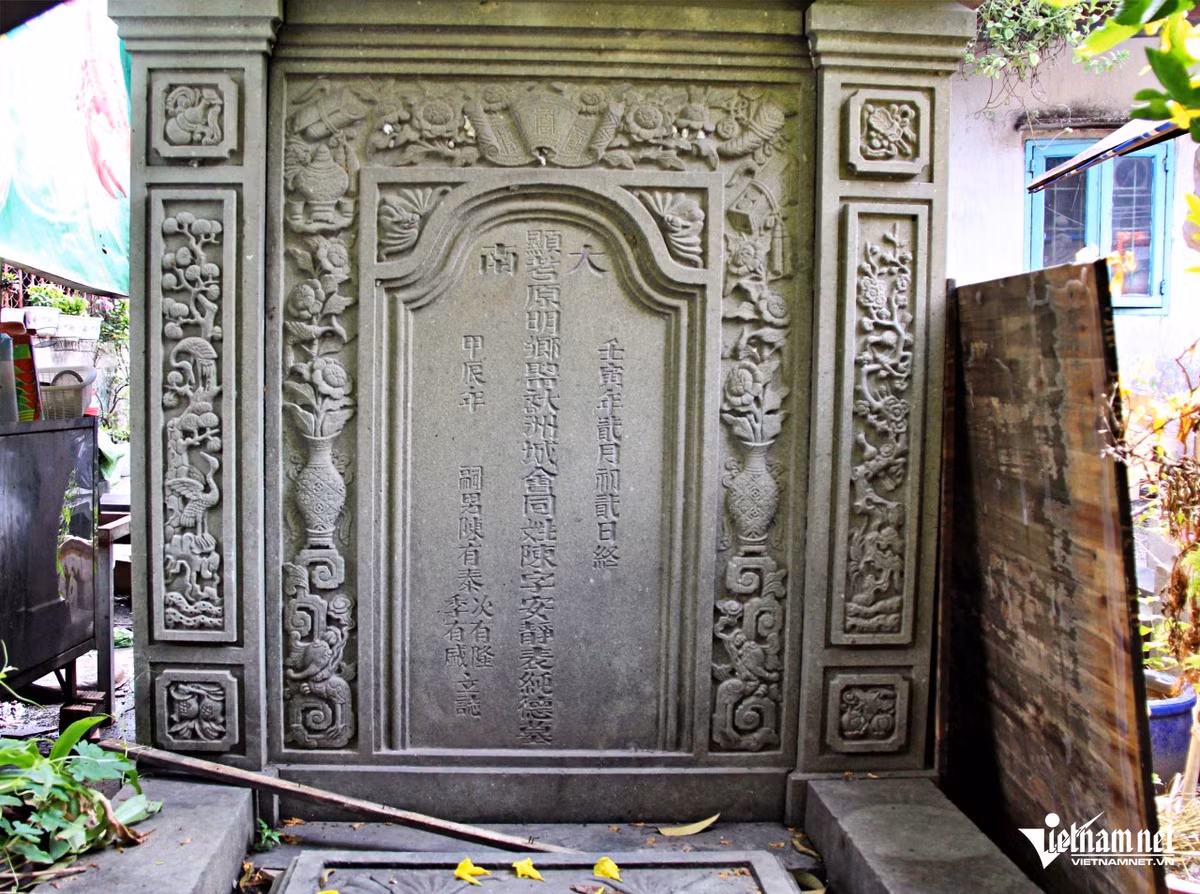 大南
壬寅年貳月初貳日終
顯考原明鄉洲城會同姓陳字安靜表純德墓
甲辰年 嗣男陳有泰 次有隆 季有咸 立誌
Vietnamnet
VIETNAMNET.VN